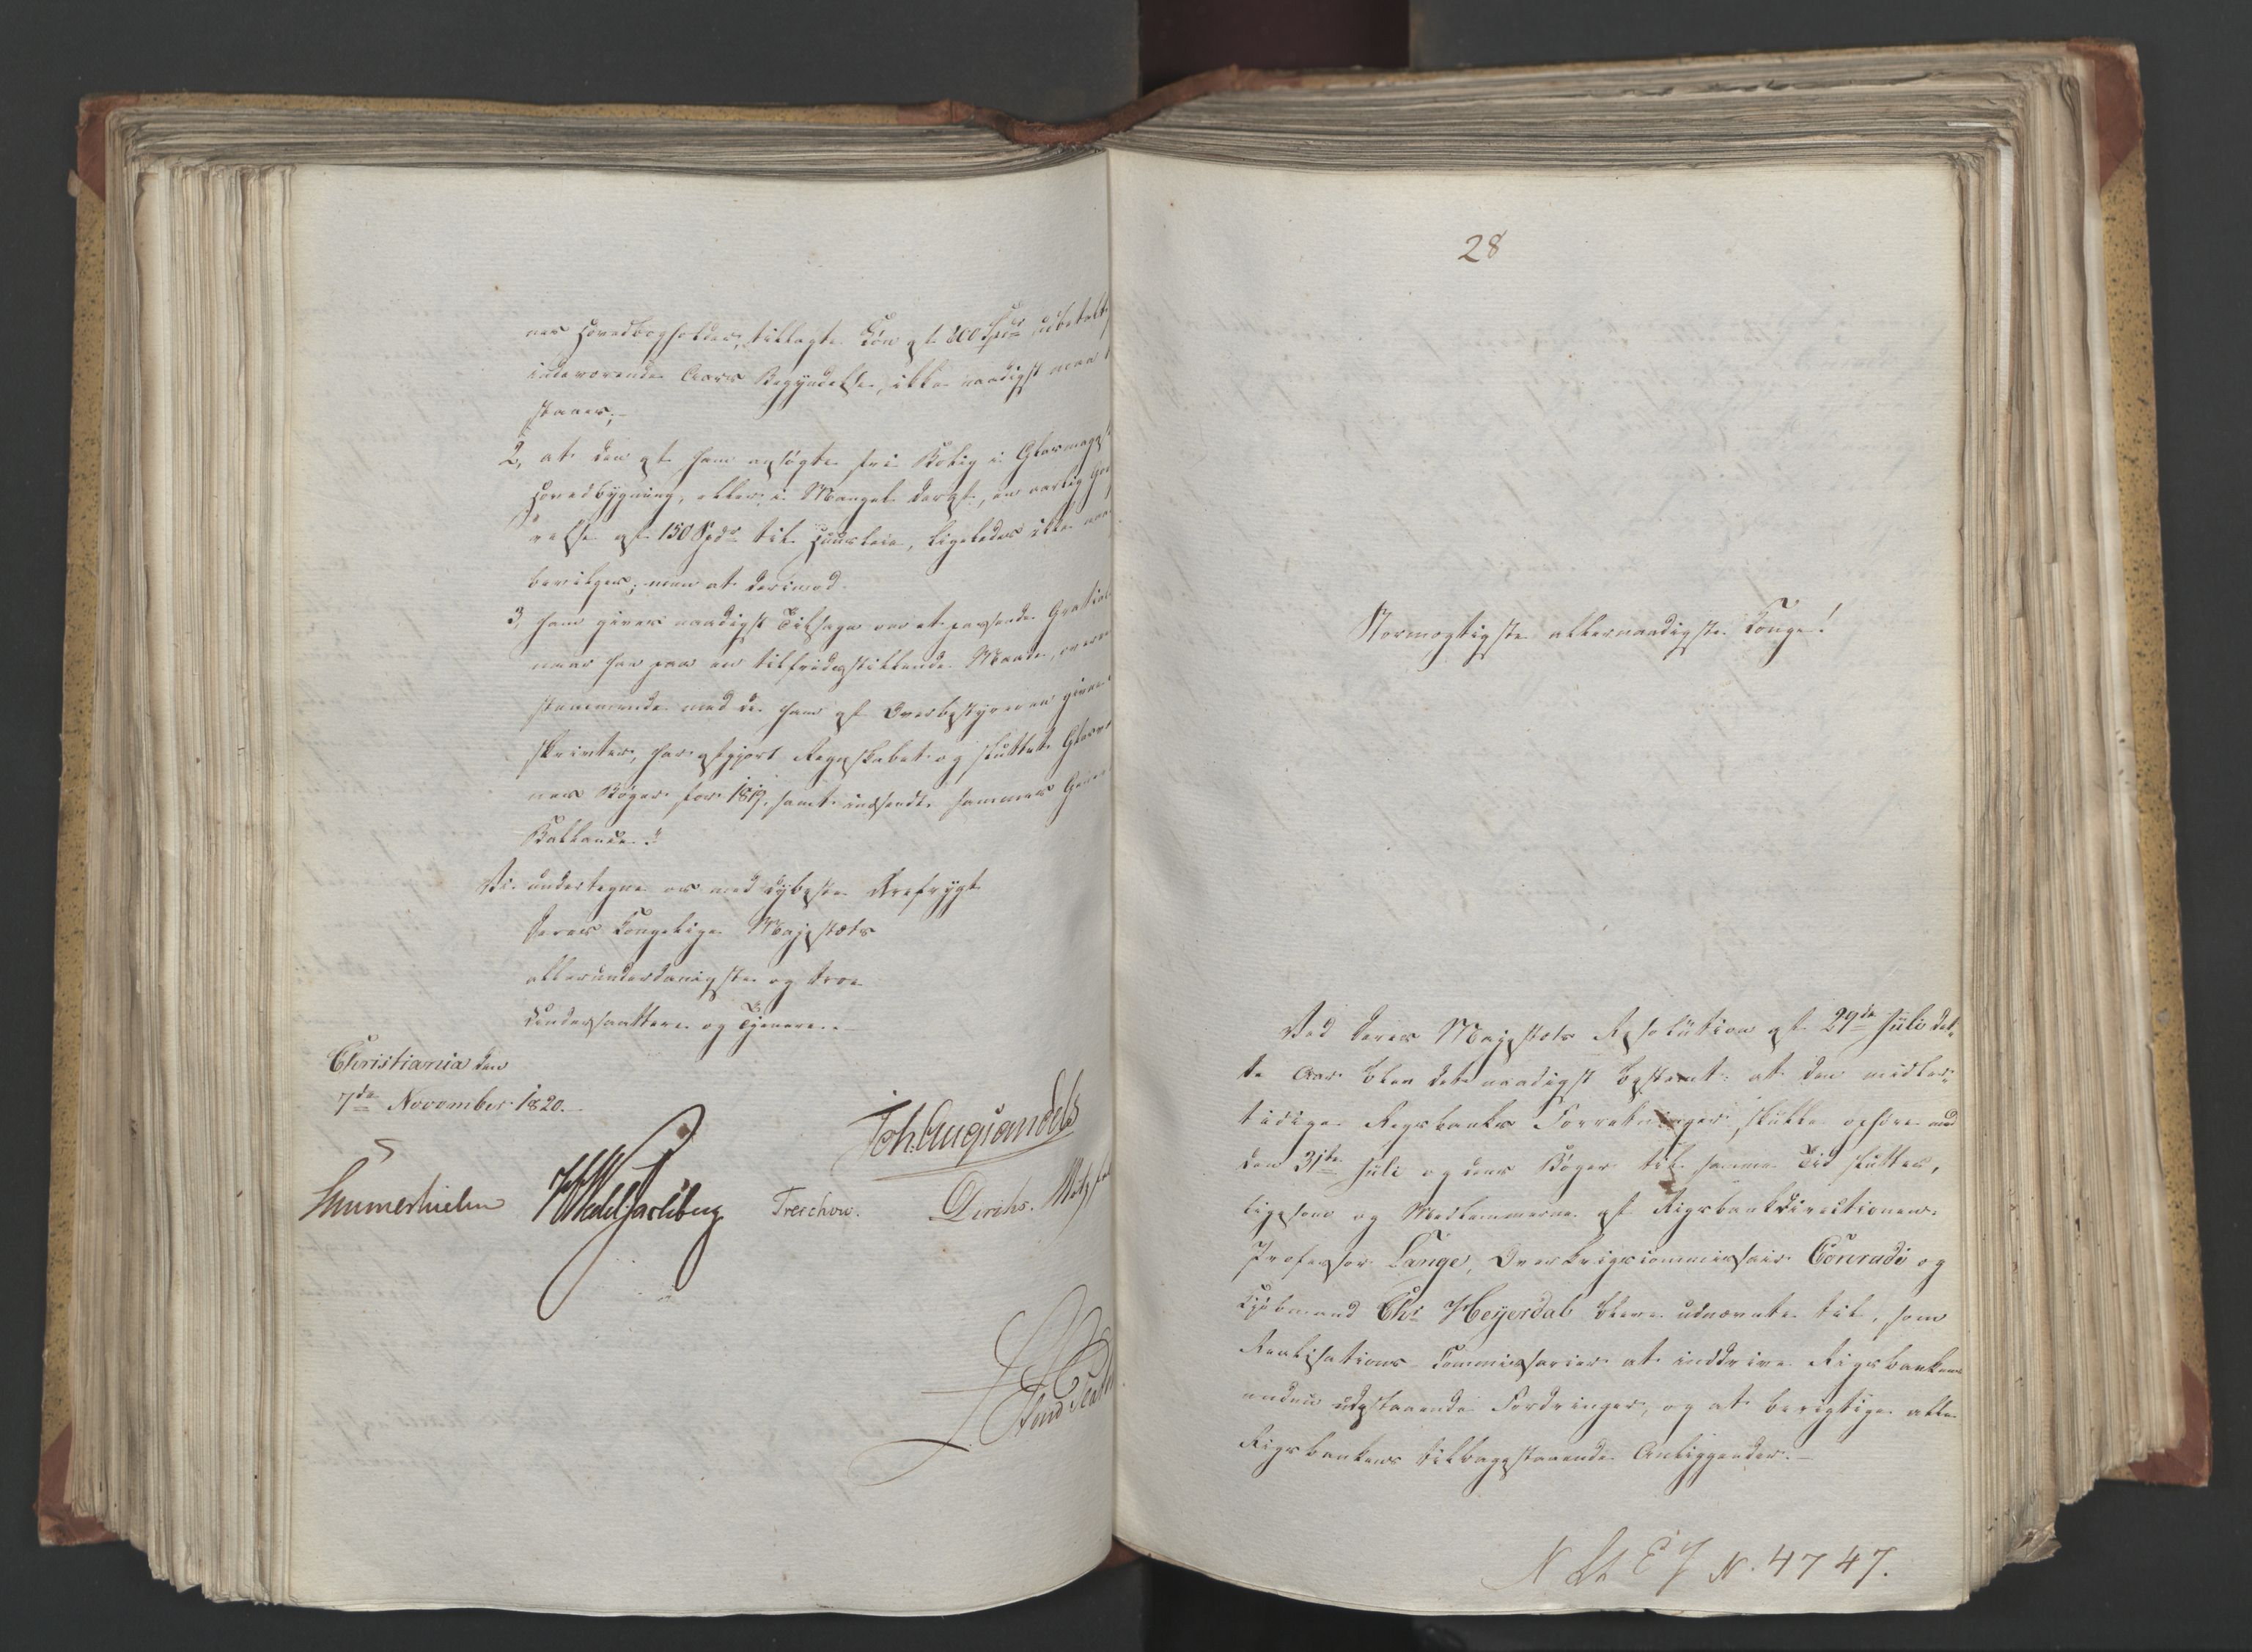 nes Hovedbogholder, tillagte Løn af 200 Spdr udbetalt
indeværende Aars Begyndelse, ikke naadigst maa
staaes;
2, at den af ham ansøgte frie Bolig i Glasmagaz
Hovedbygning, eller i Mangel deraf, en aarlig God
relse af 150 Spdr til Huusleie, ligeledes ikke maa
bevilges; men at derimod
3, ham gives naadigst Tilsagn om et passende Gratial
naar han paa en tilfredsstillende Maade, overe
stemmende med de ham af Overbestyreren givne
skrivter, har afgjort Regnskabet og sluttet Glasv
nes Bøger for 1819, samt indsendt sammes Gene
Ballance.
Vi undertegne os med dybeste Ærefrygt
Deres Kongelige Majestæts
allerunderdanigste og troe
Undersaatter og Tjenere.
Christiania den
7de November 1820.
Joh. Aug Sandels
Sommerhielm Wedel Jarlsberg Treschow. Diriks. Motzfel
28
Stormægtigste allernaadigste Konge!
Ved Deres Majestæts Resolution af 29de Juli det-
te Aar blev det naadigst bestemt: at den midler-
tidige Rigsbanks Forretninger skulle ophøre med
den 31te Juli og dens Bøger til samme Tid sluttes,
ligesom og Medlemmerne af Rigsbankdirectionen
Professor Lange, Overkrigscommissair Conradi og
Kjøbmand Chr Heyerdal bleve udnævnte til, som
Realisations-Commissarier at inddrive Rigsbankens
endnu udestaaende Fordringer, og at berigtige alle
Rigsbankens tilbagestaaende Anliggender.
N. 4747.